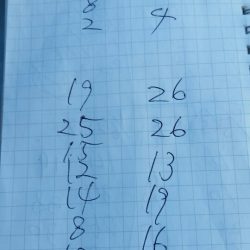 8
2 4
19 26
25 26
15
12 13
14 19
8 16